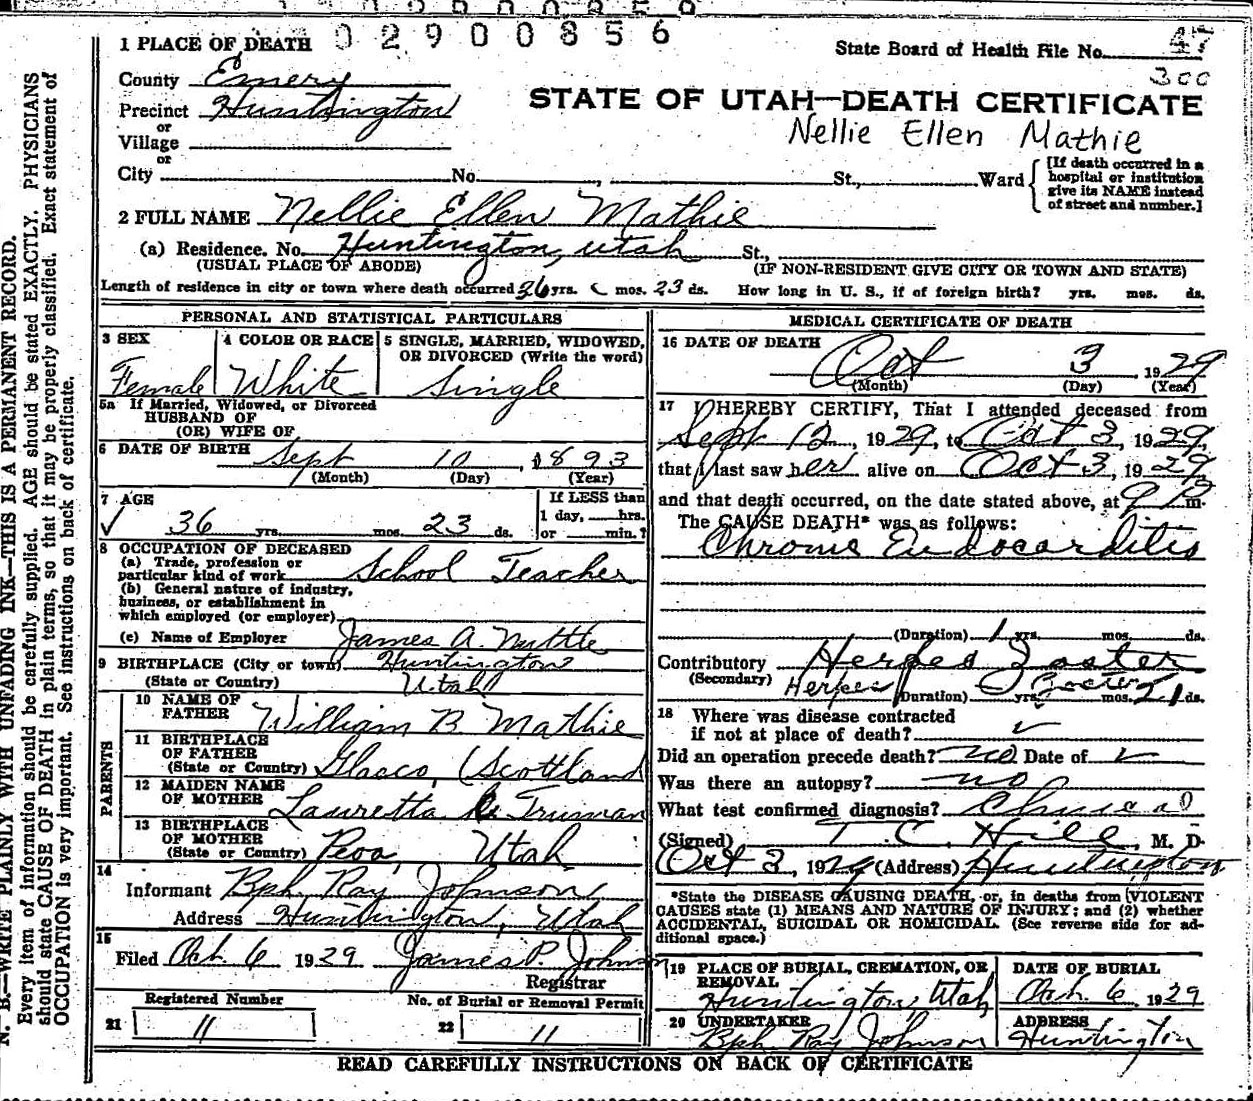 0 2 9 0 0 8 5 6
1 PLACE OF DEATH
State Board of Health File No. 47
300
County Emery
Precinct Huntington
or
Village
or
City No. , St., Ward
[If death occurred in a hospital or institution give its NAME instead of street and number.]
STATE OF UTAH—DEATH CERTIFICATE
Nellie Ellen Mathie
2 FULL NAME Nellie Ellen Mathie
(a) Residence. No. Huntington, Utah St.,
(USUAL PLACE OF ABODE) (IF NON-RESIDENT GIVE CITY OR TOWN AND STATE)
Length of residence in city or town where death occurred 36 yrs. mos. 23 ds. How long in U. S., if of foreign birth? yrs. mos. ds.
PERSONAL AND STATISTICAL PARTICULARS
3 SEX 4 COLOR OR RACE 5 SINGLE, MARRIED, WIDOWED,
OR DIVORCED (Write the word)
Female White Single
5a If Married, Widowed, or Divorced
HUSBAND OF
(OR) WIFE OF
6 DATE OF BIRTH Sept 10, 1893
(Month) (Day) (Year)
7 AGE If LESS than
36 yrs. mos. 23 ds. 1 day, hrs.
or min.?
8 OCCUPATION OF DECEASED
(a) Trade, profession or
particular kind of work School Teacher
(b) General nature of industry,
business, or establishment in
which employed (or employer)
(c) Name of Employer James A.
9 BIRTHPLACE (City or town) Huntington
(State or Country) Utah
PARENTS
10 NAME OF
FATHER William B Mathie
11 BIRTHPLACE
OF FATHER
(State or Country) Glasco, (Scottland
12 MAIDEN NAME
OF MOTHER Lauretta Truman
13 BIRTHPLACE
OF MOTHER
(State or Country) Peoa, Utah
14
Informant Bph. Ray Johnson
Address Huntington, Utah
15
Filed Oct. 6 1929 James P. Johnson
Registrar
Registered Number No. of Burial or Removal Permit
21 11 22 11
MEDICAL CERTIFICATE OF DEATH
16 DATE OF DEATH
Oct 3 1929
(Month) (Day) (Year)
17 I HEREBY CERTIFY, That I attended deceased from
Sept 12, 1929, to Oct 3, 1929,
that I last saw her alive on Oct 3, 1929
and that death occurred, on the date stated above, at 9 P m.
The CAUSE DEATH* was as follows:
Chronic Endocarditis
(Duration) 1 yrs. mos. ds.
Contributory Herpes Zoster
(Secondary) Herpes (Duration) yrs. Zoster mos. 21 ds.
18 Where was disease contracted
if not at place of death?
Did an operation precede death? no Date of
Was there an autopsy? no
What test confirmed diagnosis? Clinical
(Signed) T. C. Hill, M. D.
Oct 3, 1929 (Address) Huntington
*State the DISEASE CAUSING DEATH, or, in deaths from VIOLENT
CAUSES state (1) MEANS AND NATURE OF INJURY; and (2) whether
ACCIDENTAL, SUICIDAL OR HOMICIDAL. (See reverse side for ad-
ditional space.)
19 PLACE OF BURIAL, CREMATION, OR REMOVAL DATE OF BURIAL
Huntington, Utah Oct. 6 1929
20 UNDERTAKER ADDRESS
Bph. Ray Johnson Huntington
READ CAREFULLY INSTRUCTIONS ON BACK OF CERTIFICATE
N. B.—WRITE PLAINLY WITH UNFADING INK—THIS IS A PERMANENT RECORD.
Every item of information should be carefully supplied. AGE should be stated EXACTLY. PHYSICIANS
should state CAUSE OF DEATH in plain terms, so that it may be properly classified. Exact statement of
OCCUPATION is very important. See instructions on back of certificate.